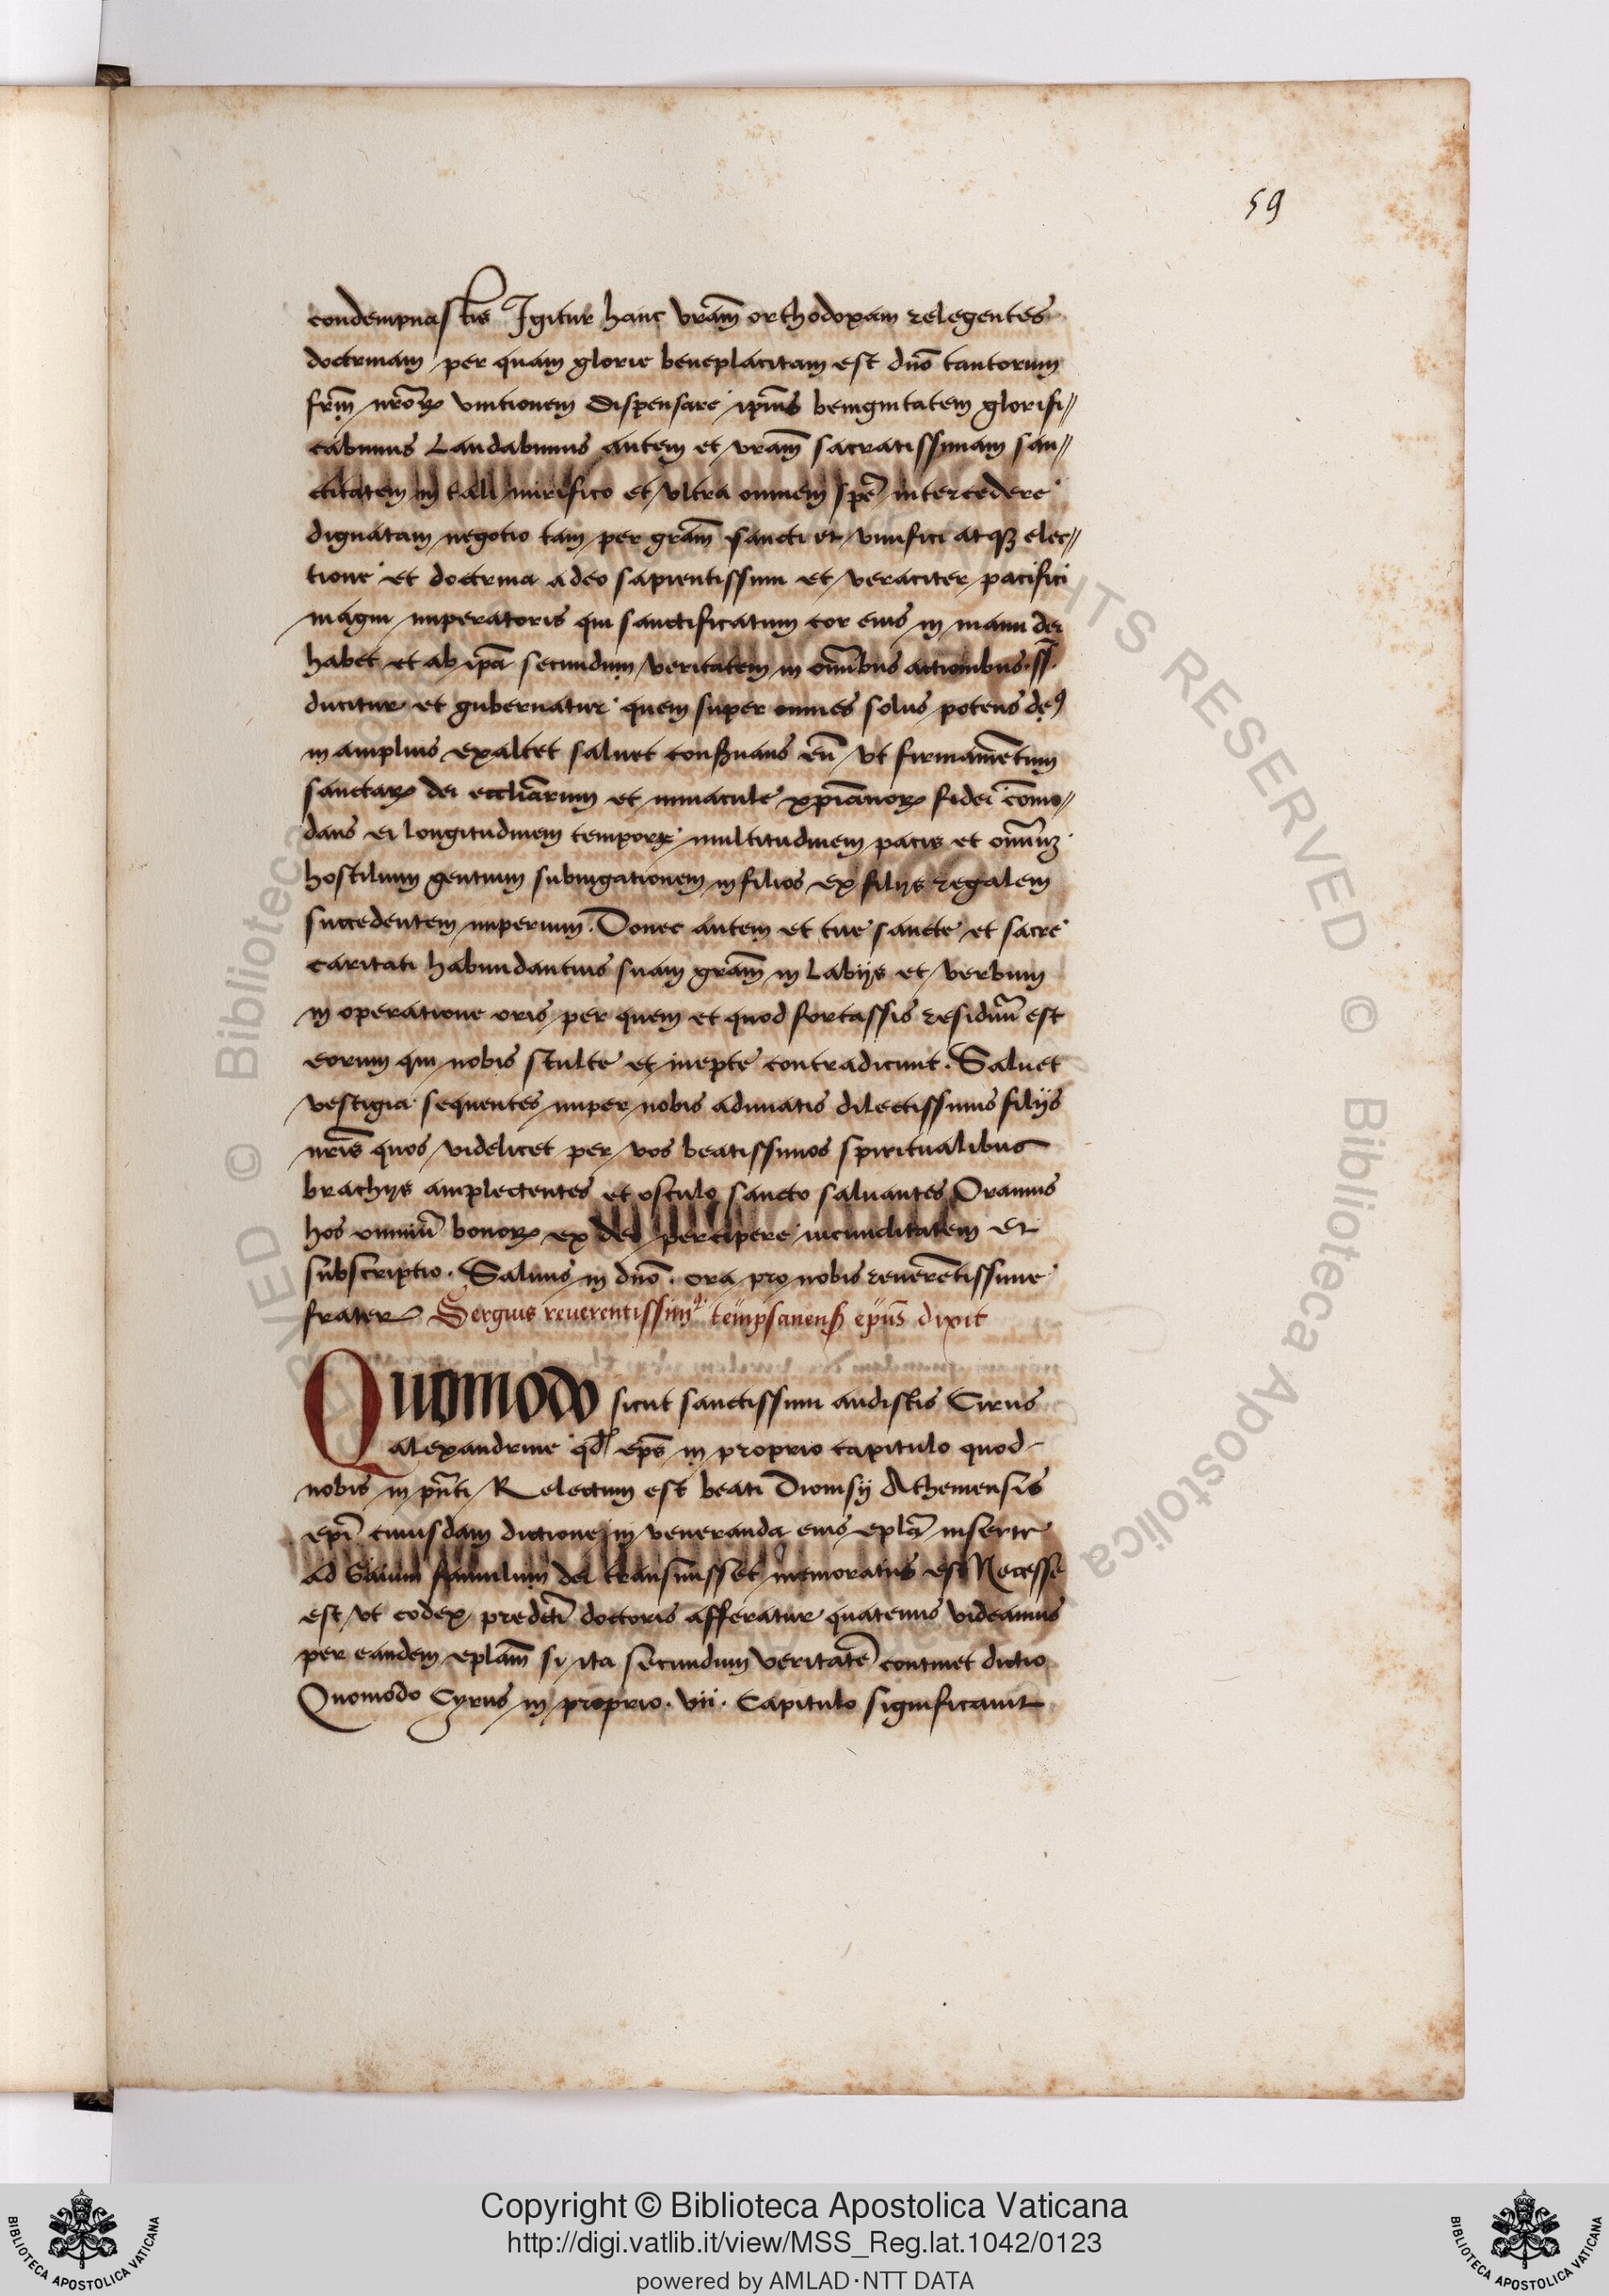 59
condempnastis Igitur hanc vrām orthodoxam relegentes
doctrinam per quam glorie beneplacitam est dnō tantorum
frm̄ nrōꝝ vnitionem dispensare ipīus benignitatem glorifi//
cabimus Laudabimus autem et vrām sacratissimam san//
ctitatem in tali mirifico et vltra omnem spē intercedere
dignatam negotio tam per grām sancti et viuifici atqꝫ elec//
tione et doctrina a deo sapientissimi et veraciter pacifici
magni imperatoris qui sanctificatum cor eius in manu dei
habet et ab ipā secundum veritatem in om̄ibus actionibus
ducitur et gubernatur quem super omnes solus potens deꝰ
in amplius exaltet saluet conẜuans eū vt firmamētum
sanctaꝝ dei eccliārum et immacule xpiānoꝝ fidei cōmo//
dans ei longitudinem tempoꝝ multitudinem pacis et om̄iuꝫ
hostilium gentium subiugationem in filios ex filijs regalem
succedentem imperium. Donec autem et tue sancte et sacre
caritati habundantius suam grām in labijs et verbum
in operatione oris per quem et quod fortassis residuū est
eorum qui nobis stulte et inepte contradicunt. Saluet
vestigia sequentes nuper nobis adunatis dilectissimis filijs
nrīs quos videlicet per vos beatissimos spiritualibus
brachijs amplectentes et osculo sancto saluantes Oramus
hos omniū bonoꝝ ex deo percipere iucunditatem Et
subscriptio. Saluus in dnō. ora pro nobis reuerētissime
frater Sergius reuerentissimꝰ tempsanenẜ ep̄us dixit
Quomodo sicut sanctissimi audistis Cirus
alexandrine qd' ep̄s in proprio capitulo quod
nobis in pn̄ti Relectum est beati Dionisij Atheniensis
epī cuiusdam dictione in veneranda eius eplā inserte
ad Gaium famulum dei transmisset memoratus est Necesse
est vt codex predcti doctoris afferatur quatenus videamus
per eandem eplam̄ si ita secundum veritatē continet dictio
Quomodo Cyrus in proprio. vii. Capitulo significauit
Copyright © Biblioteca Apostolica Vaticana
http://digi.vatlib.it/view/MSS_Reg.lat.1042/0123
powered by AMLAD·NTT DATA
BIBLIOTECA APOSTOLICA VATICANA
BIBLIOTECA APOSTOLICA VATICANA